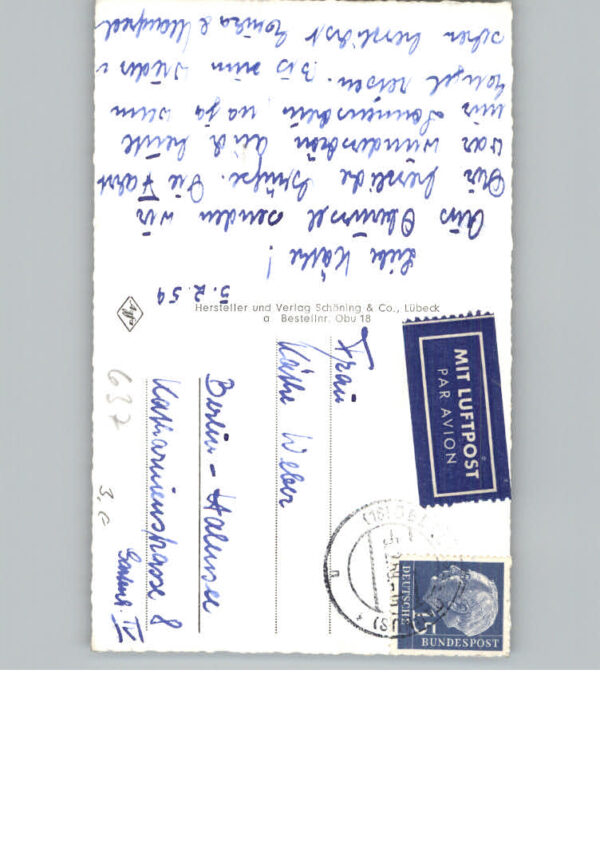 5.2.59
Liebe Käthe!
Aus Oberursel senden wir
Dir herzliche Grüße. Die Fahrt
war wunderschön. Auch heute
nur Sonnenschein, na ja wenn
Engel reisen. Bis zum Wieder-
sehen herzlichst &  Manfred
Hersteller und Verlag Schöning & Co., Lübeck
a Bestellnr. Obu 18
Agfa
MIT LUFTPOST
PAR AVION
DEUTSCHE
BUNDESPOST
15
(16)
Frau
Käthe Weber
Berlin - Halensee
Katharinenstrasse 8
Gartenh. IV
637
3.-